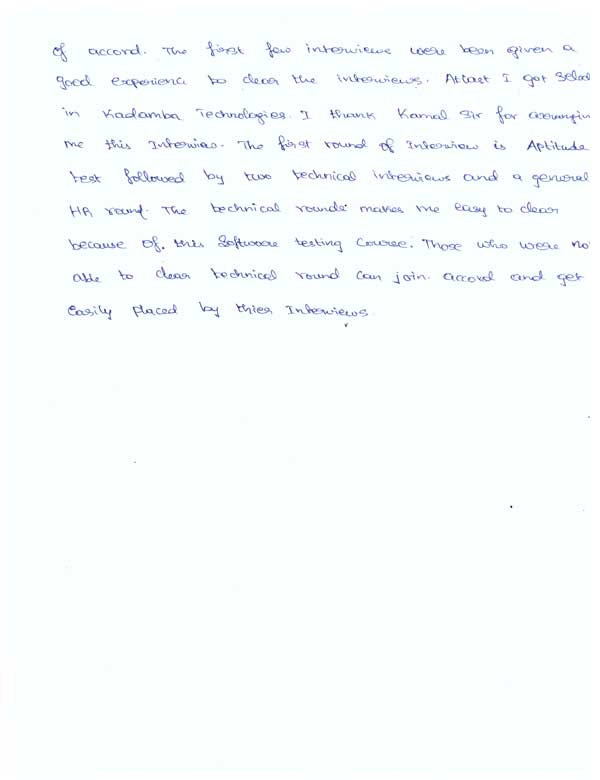 of accord. The first few interviews were been given a
good experienc to clear the interviews. Atlast I got Selec
in Kadamba Technologies. I thank Kamal Sir for
me this Interview. The first round of Interview is Aptitude
test followed by two technical interviews and a general
HR round. The technical rounds makes me easy to clear
because of. this Software testing Course. Those who were no
able to clear technical round can join. accord and get
Easily placed by thier Interviews.